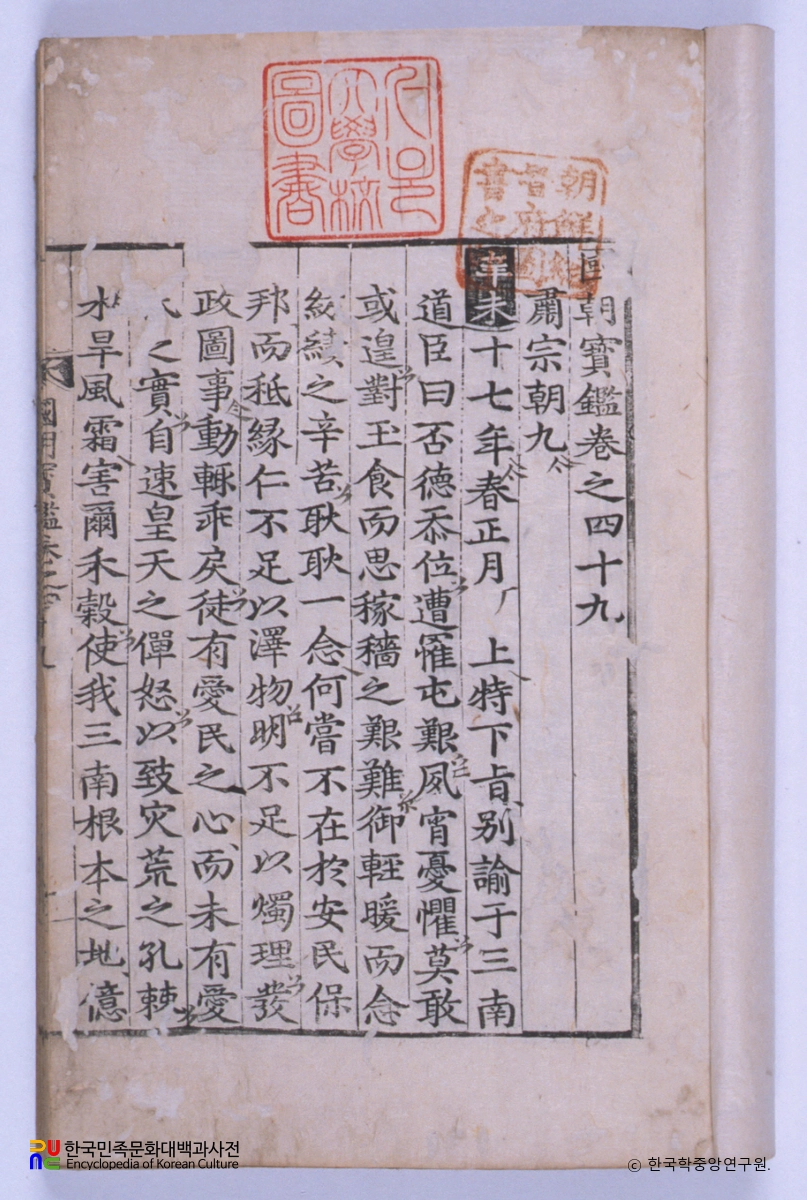 朝鮮總督府圖書之
大學校圖書
國朝寶鑑卷之四十九
肅宗朝九
辛未十七年春正月 上特下旨別諭于三南
道臣曰否德忝位遭罹屯艱夙宵憂懼莫敢
或遑對玉食而思稼穡之艱難御輕暖而念
紡績之辛苦耿耿一念何嘗不在於安民保
邦而秪緣仁不足以澤物明不足以燭理發
政圖事動輒乖戾徒有愛民之心而未有愛
之實自速皇天之僤怒以致灾荒之孔棘
水旱風霜害爾禾穀使我三南根本之地億
國朝寶鑑卷之四十九
한국민족문화대백과사전
Encyclopedia of Korean Culture
ⓒ 한국학중앙연구원.